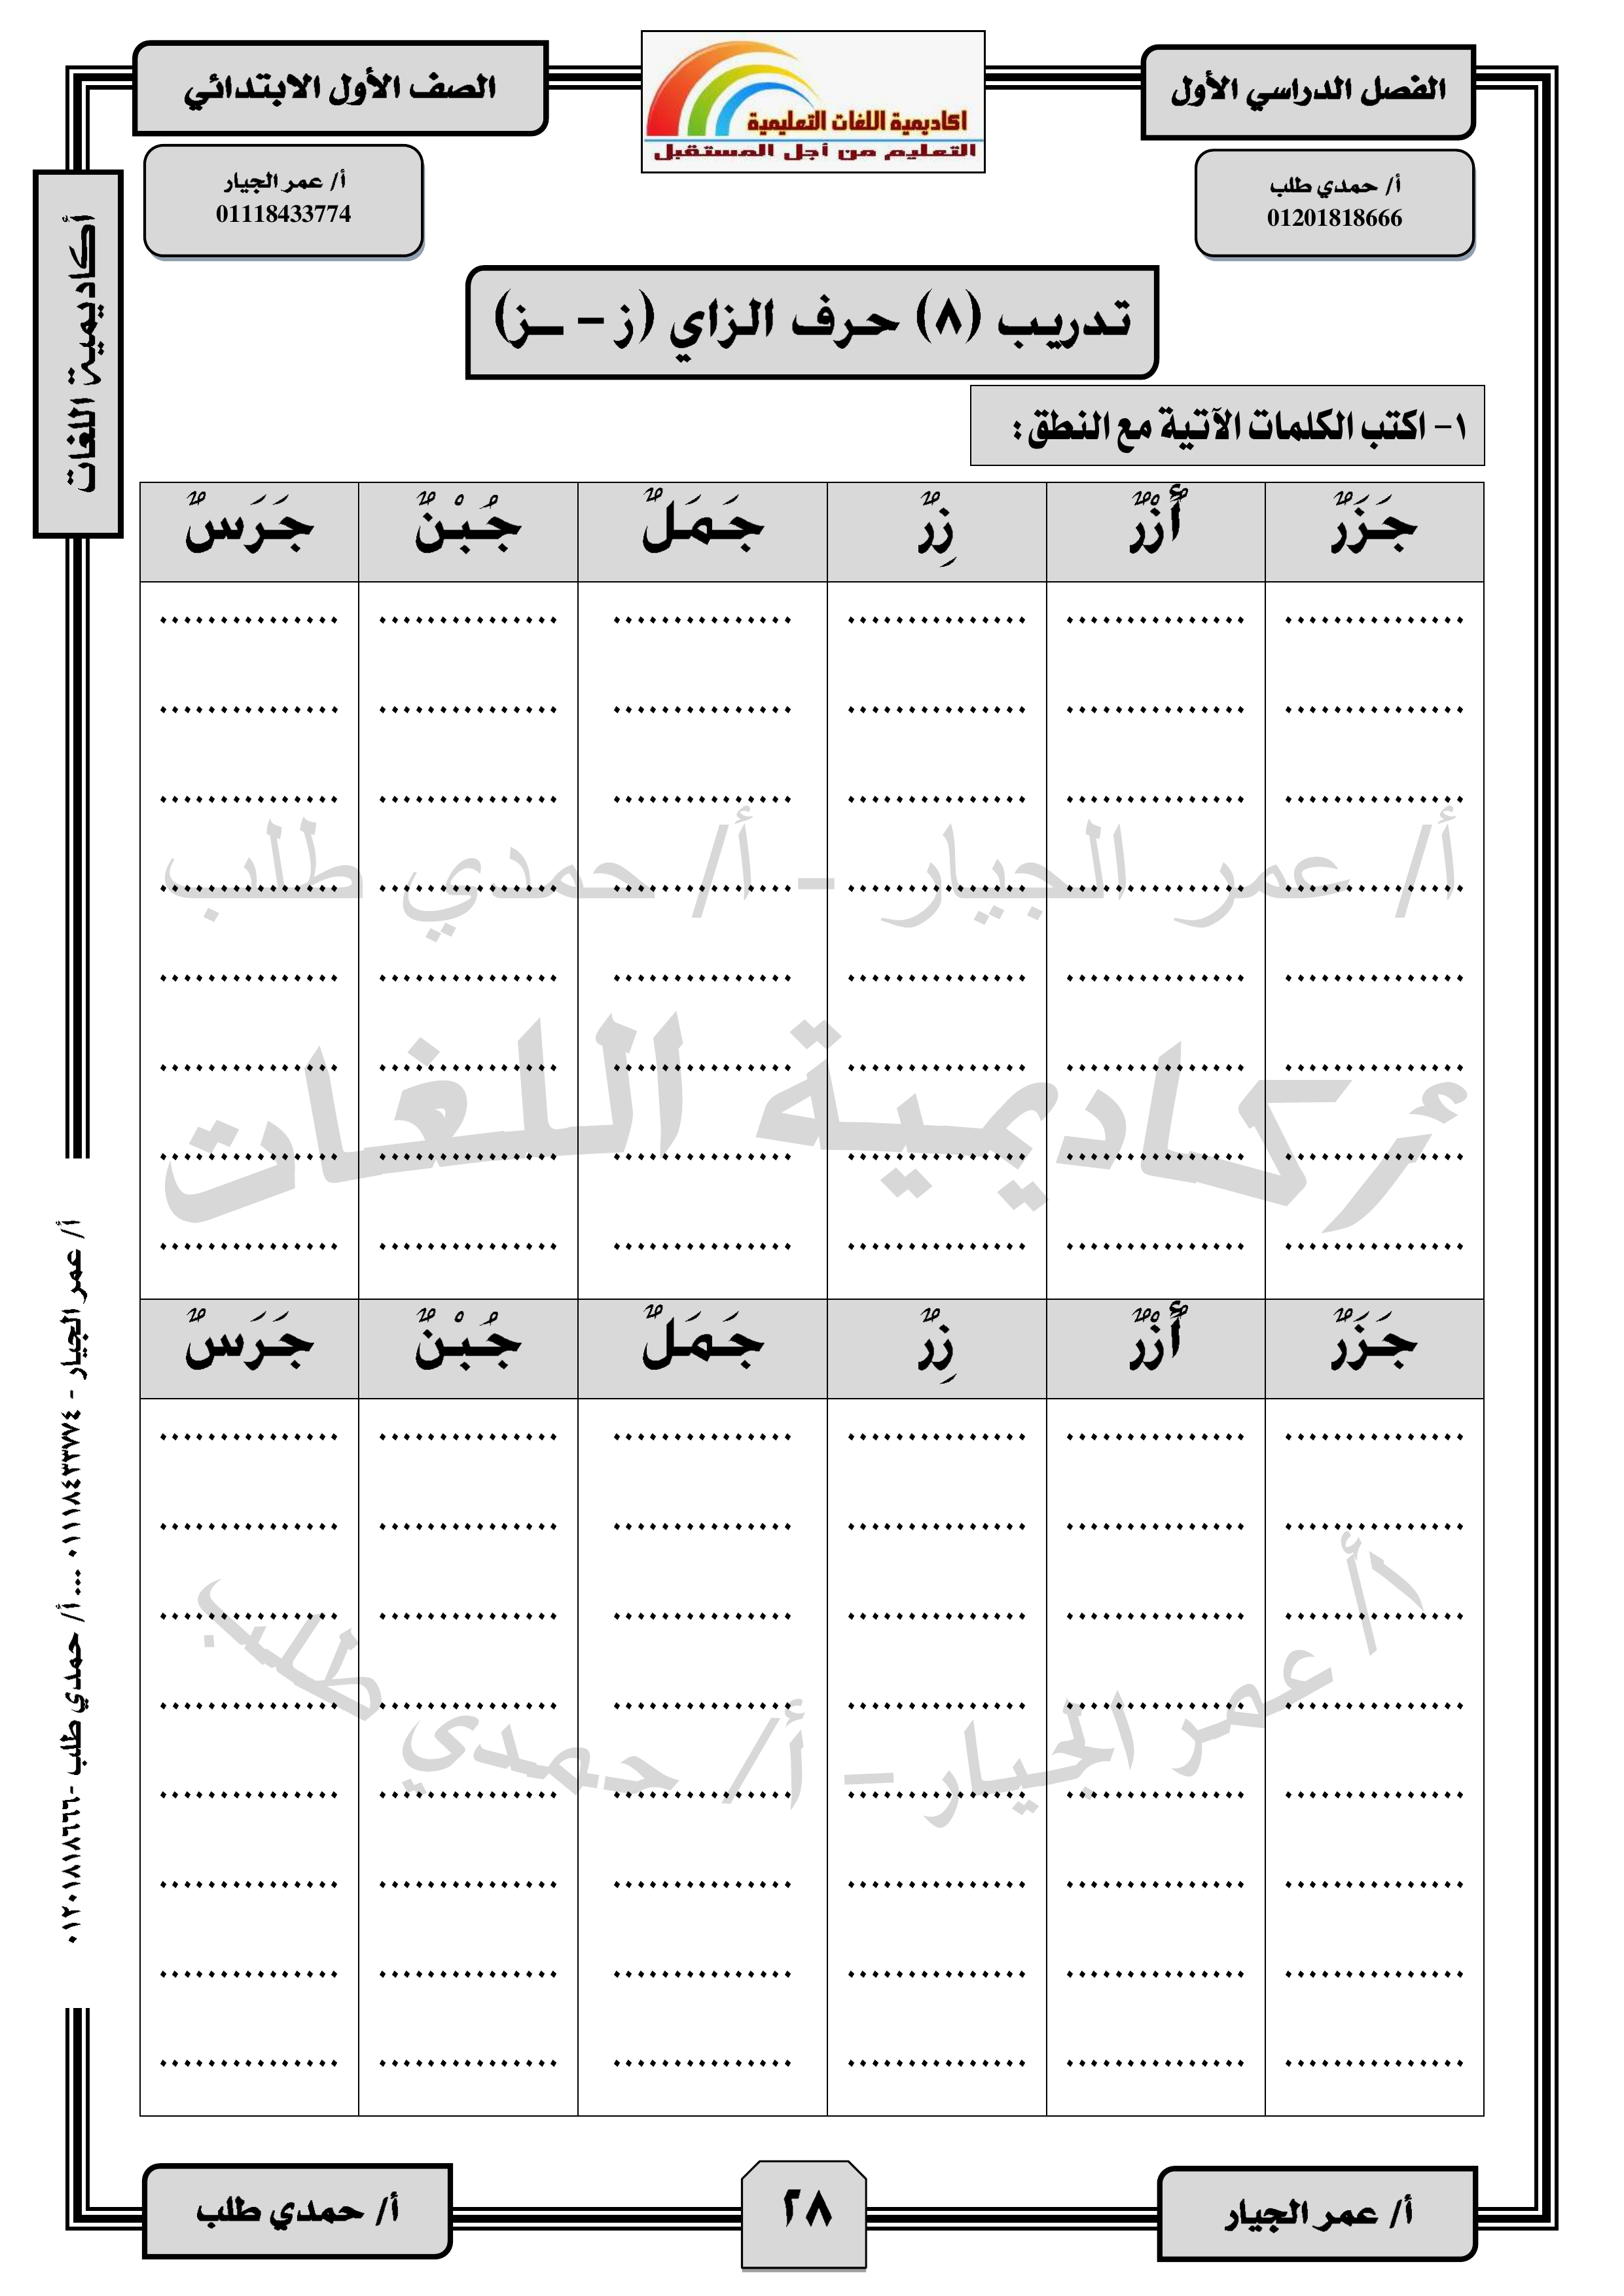 الفصل الدراسي الأول
اكاديمية اللغات التعليمية
التعليم من أجل المستقبل
الصف الأول الابتدائي
أ/ حمدي طلب
01201818666
أ/ عمر الجيار
01118433774
أكاديمية اللغات
تدريب (٨) حرف الزاي (ز – ـز)
١- اكتب الكلمات الآتية مع النطق :
جَزَرٌ أُرْزٌ زِرٌ جَمَلٌ جُبْنٌ جَرَسٌ
أ/ عمر الجيار - أ/ حمدي طلب
أكاديمية اللغات
جَزَرٌ أُرْزٌ زِرٌ جَمَلٌ جُبْنٌ جَرَسٌ
أ/ عمر الجيار – أ/ حمدي طلب
أ/ عمر الجيار - ٠١١١٨٤٣٣٧٧٤ ... أ/ حمدي طلب - ٠١٢٠١٨١٨٦٦٦
أ/ عمر الجيار
٢٨
أ/ حمدي طلب